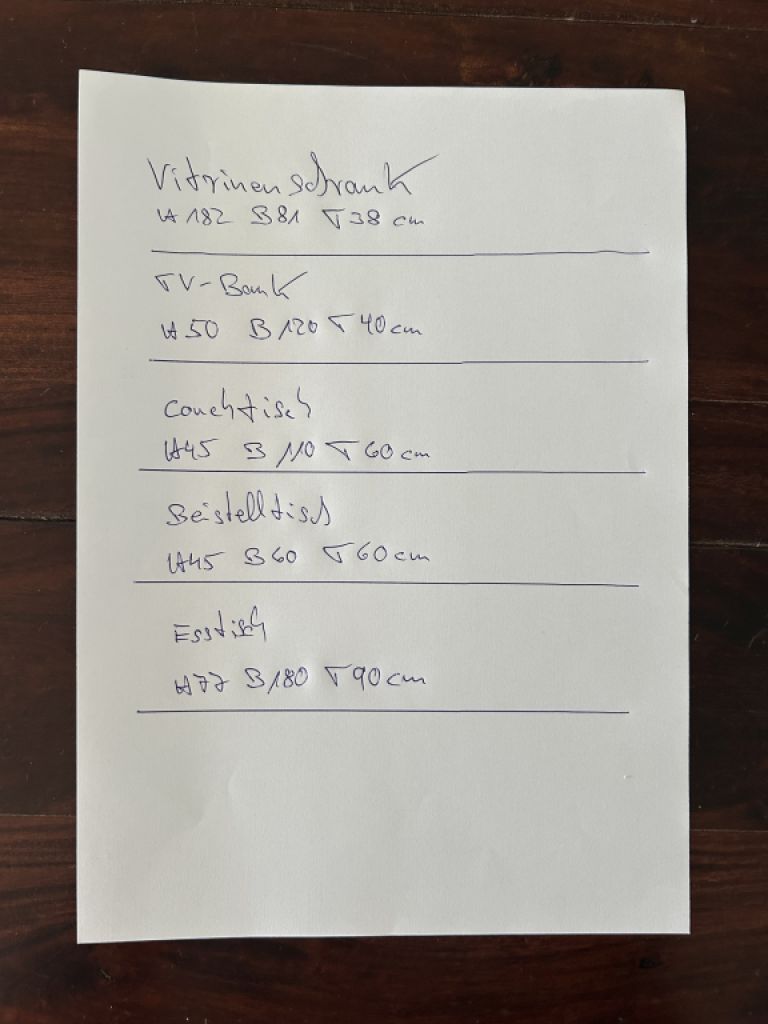 Vitrinenschrank
H 182 B 81 T 38 cm
TV-Bank
H 50 B 120 T 40 cm
Couchtisch
H 45 B 110 T 60 cm
Beistelltisch
H 45 B 60 T 60 cm
Esstisch
H 77 B 180 T 90 cm